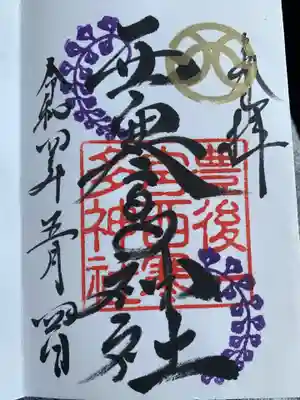 奉拝
西寒多神社
豊後一
宮西寒
多神社
令和四年五月四日